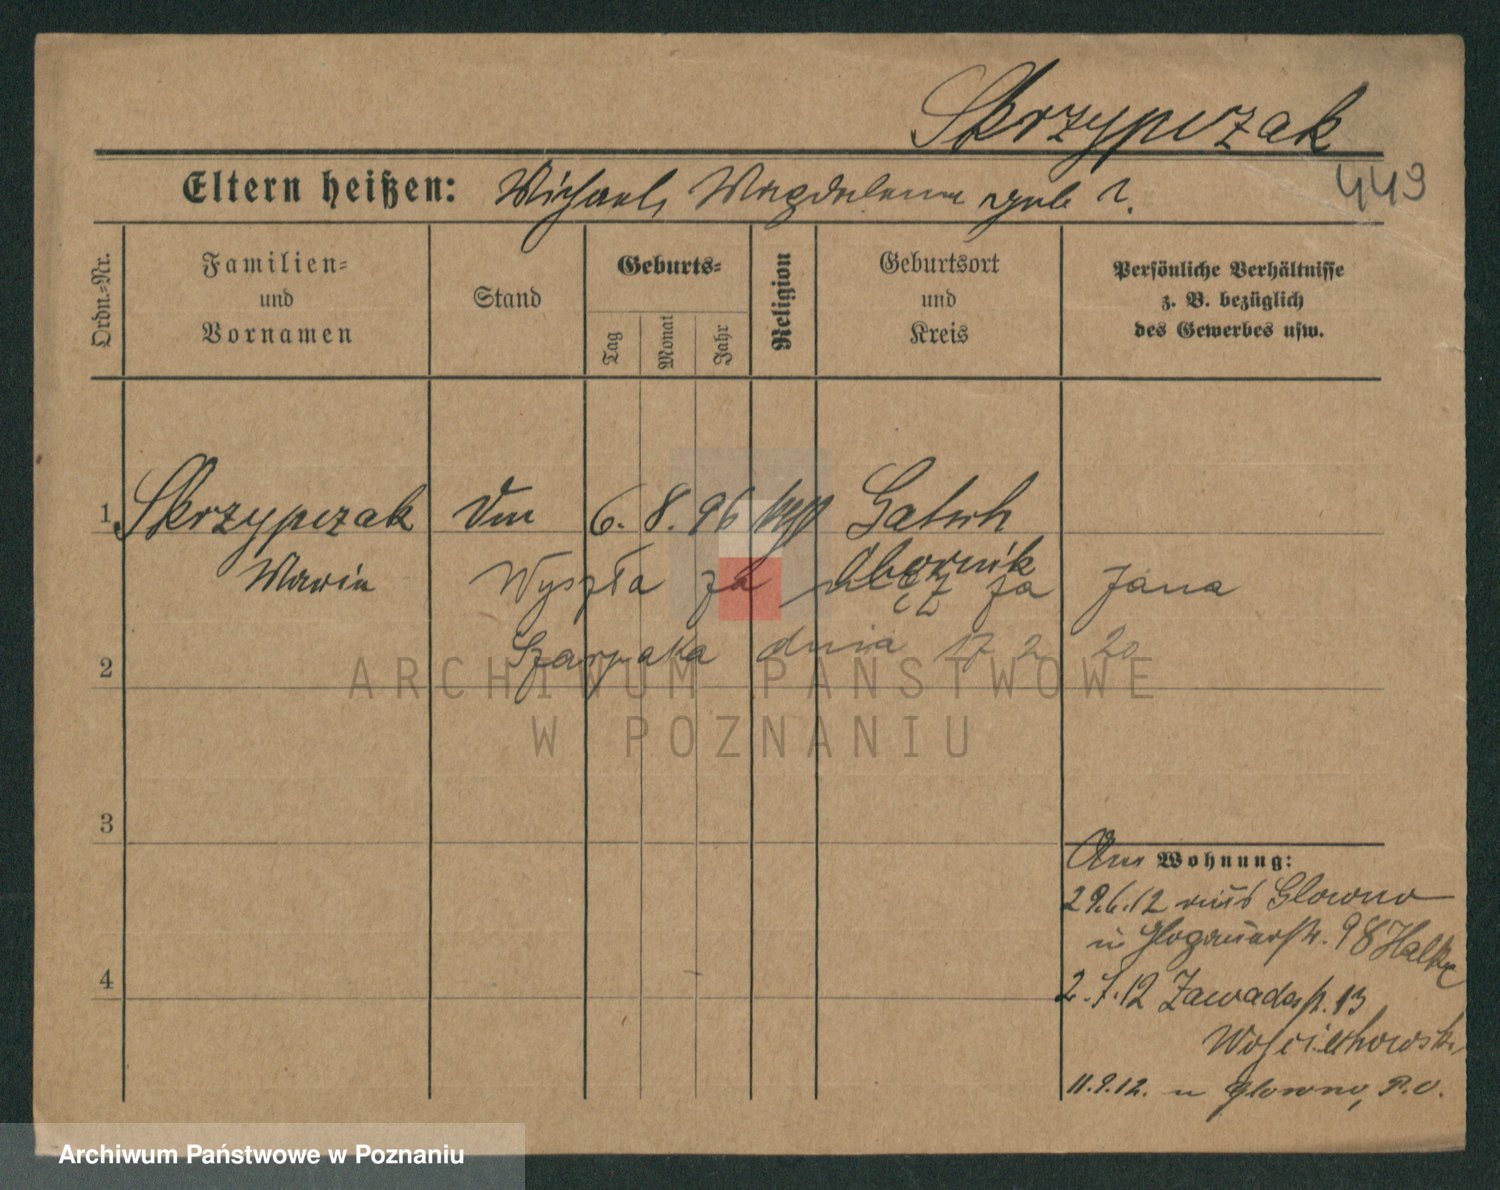 Skrzypczak
449
Eltern heißen: Michael, Magdalena geb ?.
Ordn.-Nr.
Familien-
und
Vornamen
Stand
Geburts-
Tag
Monat
Jahr
Religion
Geburtsort
und
Kreis
Persönliche Verhältnisse
z. B. bezüglich
des Gewerbes usw.
1 Skrzypczak 6. 8. 96
Maria Obornik
Wyszła za mąż za Jana
2 Szarpaka dnia 17 2 20
ARCHIWUM PAŃSTWOWE
W POZNANIU
3
4
Wohnung:
29.6.12 aus Glowno
in Glogauerstr. 98
2.7.12 Zawadestr. 13
Wojciechowski
11.9.12. n Glowno, P.O.
Archiwum Państwowe w Poznaniu